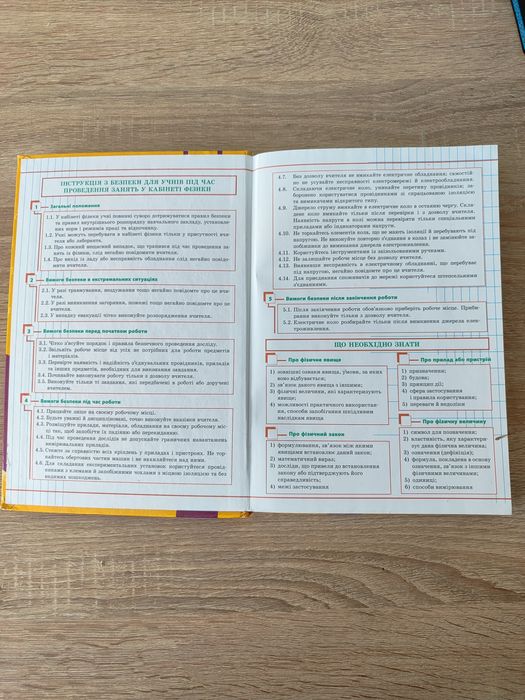 ІНСТРУКЦІЯ З БЕЗПЕКИ ДЛЯ УЧНІВ ПІД ЧАС
ПРОВЕДЕННЯ ЗАНЯТЬ У КАБІНЕТІ ФІЗИКИ
1 Загальні положення
1.1. У кабінеті фізики учні повинні суворо дотримуватися правил безпеки
та правил внутрішнього розпорядку навчального закладу, установле-
них норм і режимів праці та відпочинку.
1.2. Учні можуть перебувати в кабінеті фізики тільки у присутності вчи-
теля або лаборанта.
1.3. Про кожний нещасний випадок, що трапився під час проведення за-
нять із фізики, слід негайно повідомити вчителя.
1.4. Про вихід із ладу або несправність обладнання слід негайно повідо-
мити вчителя.
2 Вимоги безпеки в екстремальних ситуаціях
2.1. У разі травмування, нездужання тощо негайно повідомте про це вчи-
теля.
2.2. У разі виникнення загоряння, пожежі тощо негайно повідомте про це
вчителя.
2.3. У випадку евакуації чітко виконуйте розпорядження вчителя.
3 Вимоги безпеки перед початком роботи
3.1. Чітко з'ясуйте порядок і правила безпечного проведення досліду.
3.2. Звільніть робоче місце від усіх не потрібних для роботи предметів
і матеріалів.
3.3. Перевірте наявність і надійність з'єднувальних провідників, приладів
та інших предметів, необхідних для виконання завдання.
3.4. Починайте виконувати роботу тільки з дозволу вчителя.
3.5. Виконуйте тільки ті завдання, які передбачені в роботі або доручені
вчителем.
4 Вимоги безпеки під час роботи
4.1. Працюйте лише на своєму робочому місці.
4.2. Будьте уважні й дисципліновані, точно виконуйте вказівки вчителя.
4.3. Розміщуйте прилади, матеріали, обладнання на своєму робочому міс-
ці так, щоб запобігти їх падінню або перекиданню.
4.4. Під час проведення дослідів не допускайте граничних навантажень
вимірювальних приладів.
4.5. Стежте за справністю всіх кріплень у приладах і пристроях. Не тор-
кайтесь обертових частин машин і не нахиляйтеся над ними.
4.6. Для складання експериментальних установок користуйтеся провід-
никами з клемами й запобіжними чохлами з міцною ізоляцією та без
видимих пошкоджень.
4.7. Без дозволу вчителя не вмикайте електричне обладнання; самостій-
но не усувайте несправності електромережі й електрообладнання.
4.8. Складаючи електричне коло, уникайте перетину провідників; за-
боронено користуватися провідниками зі спрацьованою ізоляцією
та вимикачами відкритого типу.
4.9. Джерело струму вмикайте в електричне коло в останню чергу. Скла-
дене коло вмикайте тільки після перевірки і з дозволу вчителя.
Наявність напруги в колі можна перевіряти тільки спеціальними
приладами або індикаторами напруги.
4.10. Не торкайтесь елементів кола, що не мають ізоляції й перебувають під
напругою. Не виконуйте повторно з'єднання в колах і не замінюйте за-
побіжники до вимкнення джерела електроживлення.
4.11. Користуйтеся інструментами із ізольованими ручками.
4.12. Не залишайте робоче місце без дозволу вчителя.
4.13. Виявивши несправність в електричному обладнанні, що перебуває
під напругою, негайно повідомте про це вчителя.
4.14. Для приєднання споживачів до мережі користуйтеся штепсельними
з'єднаннями.
5 Вимоги безпеки після закінчення роботи
5.1. Після закінчення роботи обов'язково приберіть робоче місце. Приби-
рання виконуйте тільки з дозволу вчителя.
5.2. Електричне коло розбирайте тільки після вимкнення джерела елек-
троживлення.
ЩО НЕОБХІДНО ЗНАТИ
Про фізичне явище
1) зовнішні ознаки явища, умови, за яких
воно відбувається;
2) зв'язок даного явища з іншими;
3) фізичні величини, які характеризують
явище;
4) можливості практичного використан-
ня, способи запобігання шкідливим
наслідкам явища
Про фізичний закон
1) формулювання, зв'язок між якими
явищами встановлює даний закон;
2) математичний вираз;
3) досліди, що привели до встановлення
закону або підтверджують його
справедливість;
4) межі застосування
Про прилад або пристрій
1) призначення;
2) будова;
3) принцип дії;
4) сфера застосування
і правила користування;
5) переваги й недоліки
Про фізичну величину
1) символ для позначення;
2) властивість, яку характери-
зує дана фізична величина;
3) означення (дефініція);
4) формула, покладена в основу
означення, зв'язок з іншими
фізичними величинами;
5) одиниці;
6) способи вимірювання